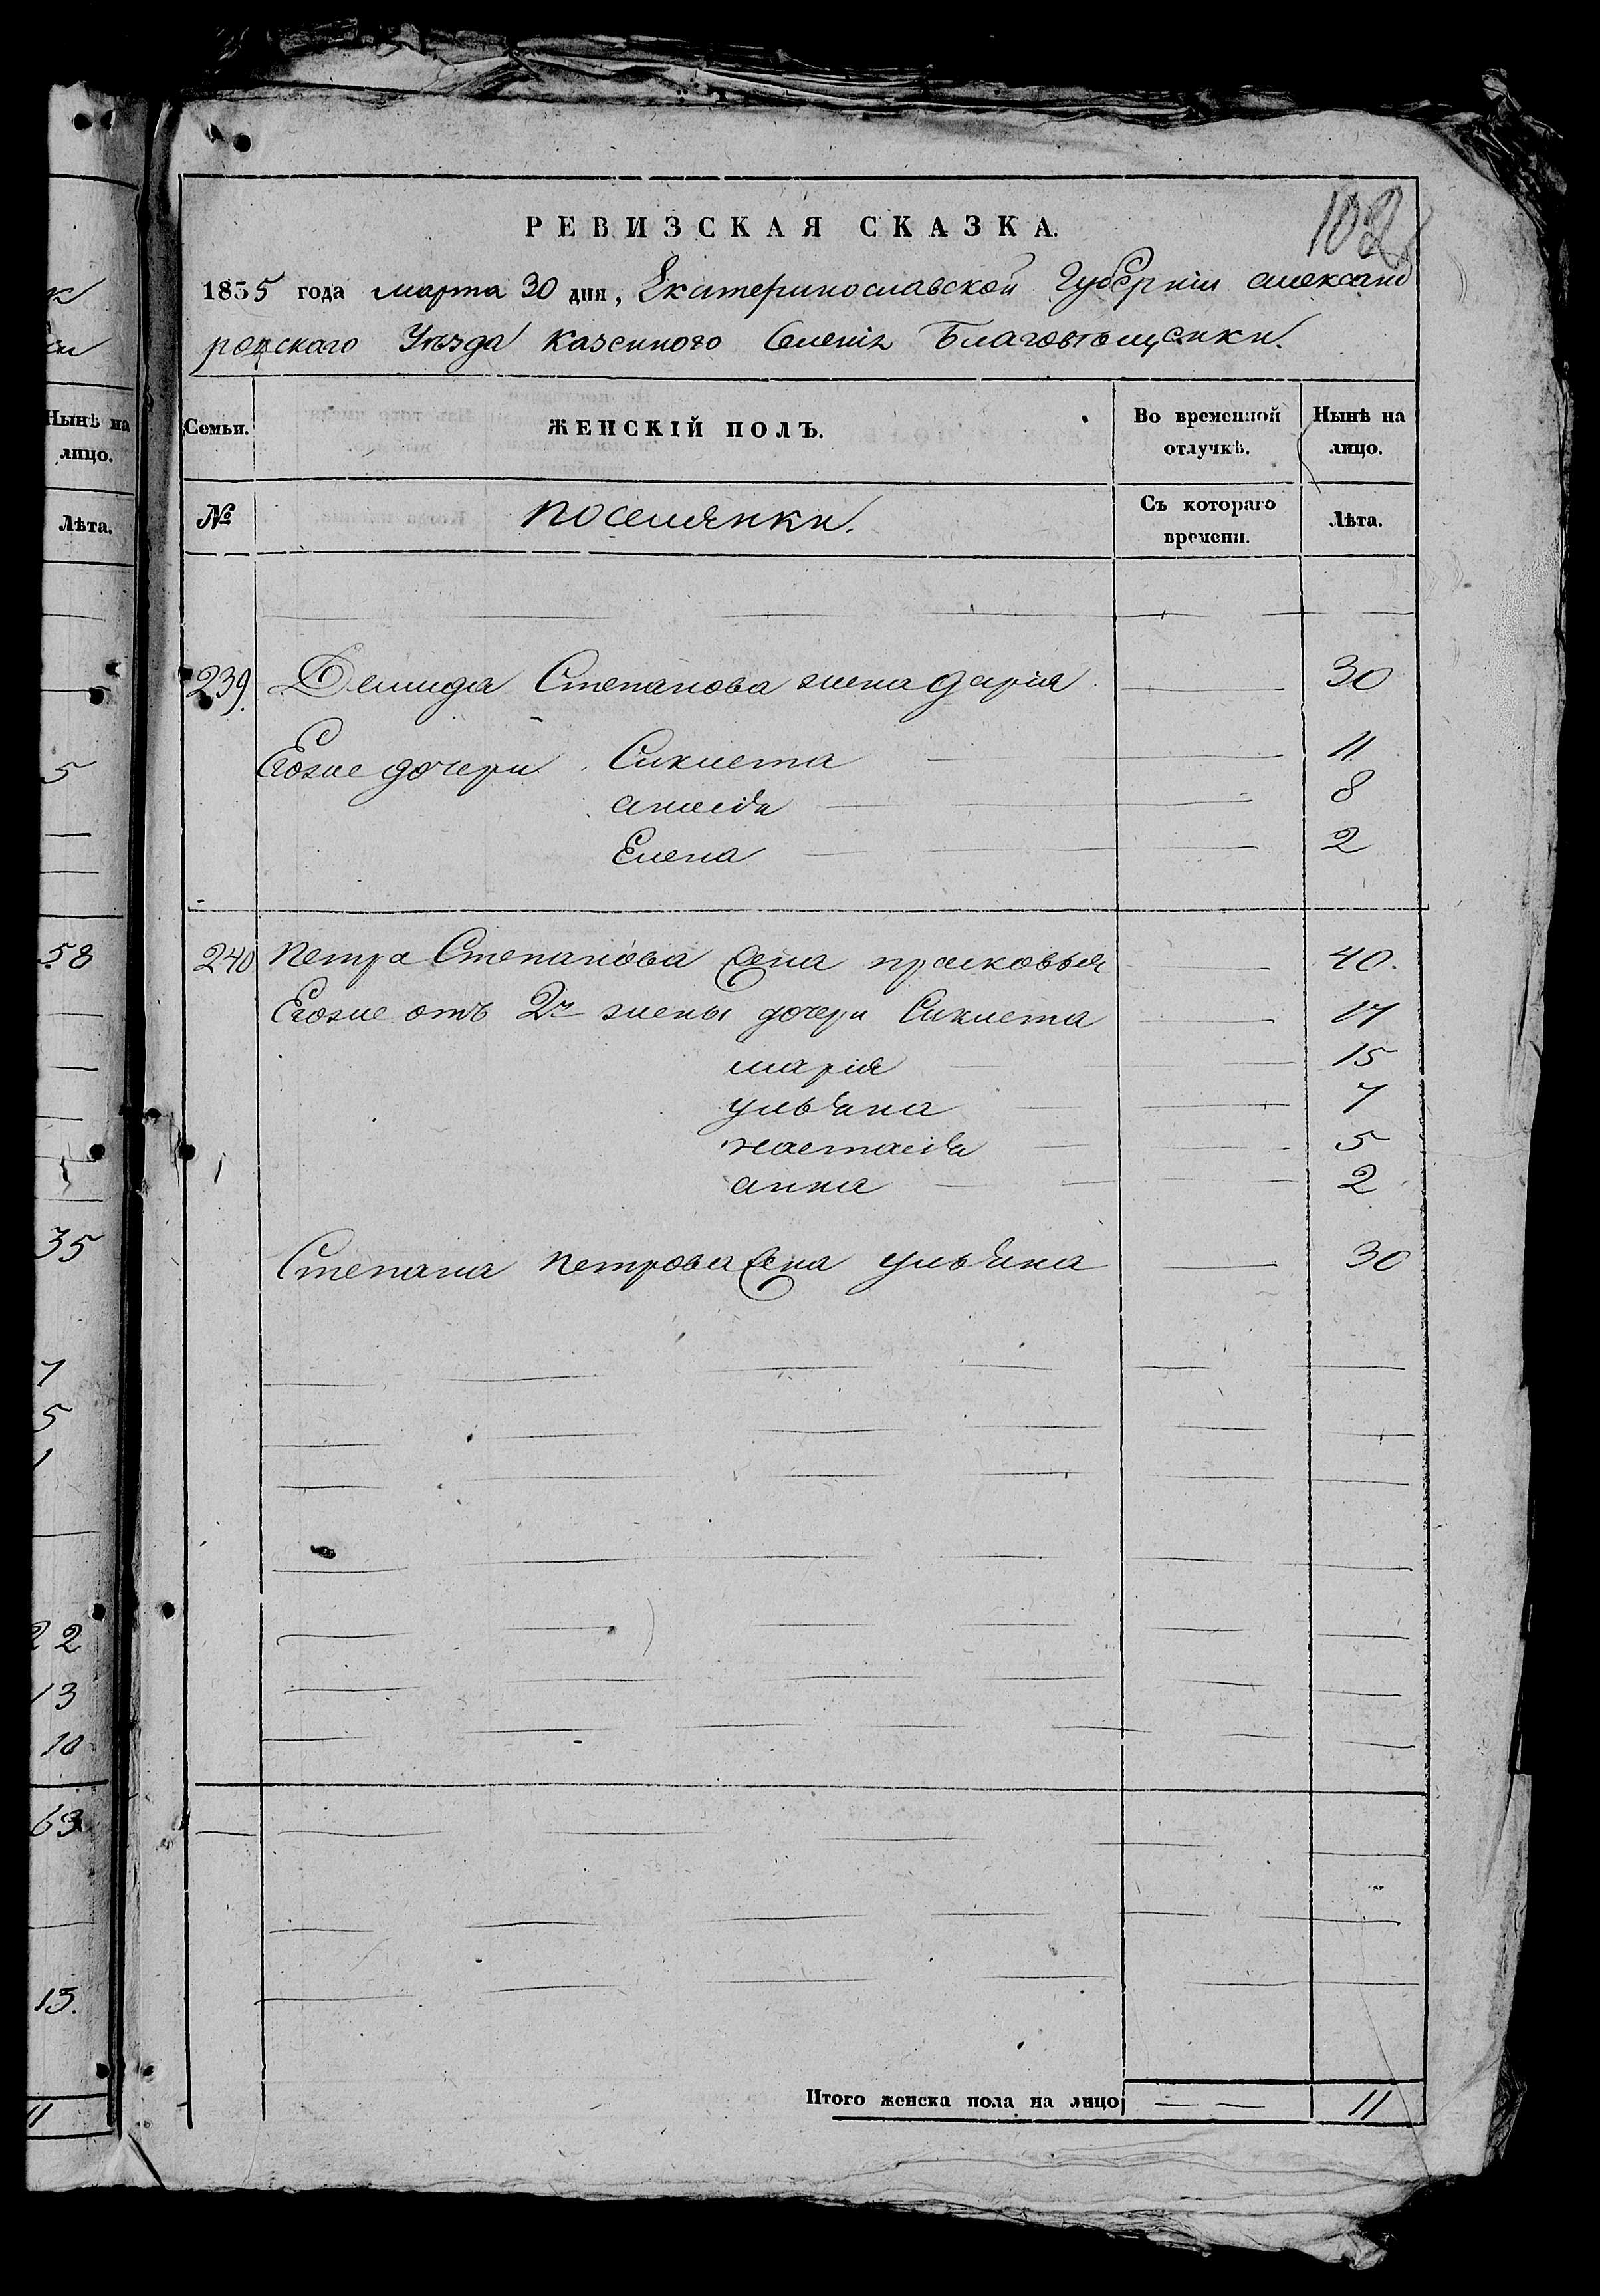 к
ки
Нынѣ на
лицо.
Лѣта.
5
58
35
7
5
1
22
13
10
63
13.
11
102
РЕВИЗСКАЯ СКАЗКА.
1835 года марта 30 дня, Екатеринославской Губерніи Александ
ровскаго Уѣзда Казенного Селенія Благовѣщенки.
Семьи. ЖЕНСКІЙ ПОЛЪ. Во временной отлучкѣ. Нынѣ на лицо.
№ поселянки. Съ котораго времени. Лѣта.
239. Демида Степанова жена дарія 30
Егоже дочери Сиклета 11
анисія 8
Елена 2
240 Петра Степанова жена прасковья 40.
Егоже отъ 2й жены дочери Сиклета 17
марія 15
ульяна 7
настасія 5
анна 2
Степана петрова жена ульяна 30
Итого женска пола на лицо 11